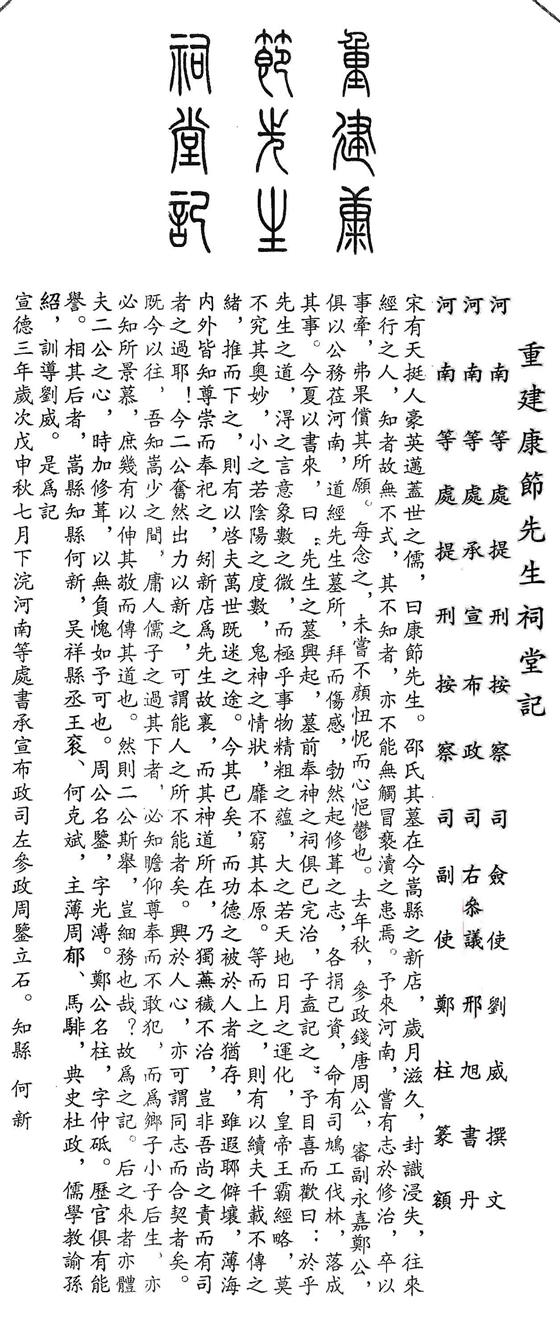 重建康
節先生
祠堂記
重建康節先生祠堂記
河南等處提刑按察司僉使劉威撰文
河南等處承宣布政司右叅議邢旭書丹
河南等處提刑按察司副使鄭柱篆額
宋有天挺人豪英邁蓋世之儒，曰康節先生。邵氏其墓在今嵩縣之新店，歲月滋久，封識浸失，往來
經行之人，知者故無不式，其不知者，亦不能無觸冒褻瀆之患焉。予來河南，嘗有志於修治，卒以
事牽，弗果償其所願。每念之，未嘗不顔忸怩而心悒鬱也。去年秋，參政錢唐周公，審副永嘉鄭公，
俱以公務莅河南，道經先生墓所，拜而傷感，勃然起修葺之志，各捐己資，命有司鳩工伐林，落成
其事。今夏以書來，曰："先生之墓興起，墓前奉神之祠俱已完治，子盍記之"予目喜而歡曰：於乎
先生之道，淂之言意象數之微，而極乎事物精粗之蘊，大之若天地日月之運化，皇帝王霸經略，莫
不究其奧妙，小之若陰陽之度數，鬼神之情狀，靡不窮其本原。等而上之，則有以續夫千載不傳之
緒，推而下之，則有以啓夫萬世既迷之途。今其已矣，而功德之被於人者猶存，雖遐聊僻壤，薄海
内外皆知尊崇而奉祀之，矧新店爲先生故裏，而其神道所在，乃獨蕪穢不治，豈非吾尚之責而有司
者之過耶！今二公奮然出力以新之，可謂能人之所不能者矣。興於人心，亦可謂同志而合契者矣。
既今以往，吾知嵩少之間，庸人儒子之過其下者，必知瞻仰尊奉而不敢犯，而爲鄉子小子后生，亦
必知所景慕，庶幾有以伸其敬而傳其道也。然則二公斯舉，豈細務也哉？故爲之記。后之來者亦體
夫二公之心，時加修葺，以無負愧如予可也。周公名鑒，字光溥。鄭公名柱，字仲砥。歷官俱有能
譽。相其后者，嵩縣知縣何新，吴祥縣丞王衮、何克斌，主薄周郁、馬騑，典史杜政，儒學教諭孫
紹，訓導劉威。是爲記
宣德三年歲次戊申秋七月下浣河南等處書承宣布政司左參政周鑒立石。知縣 何新